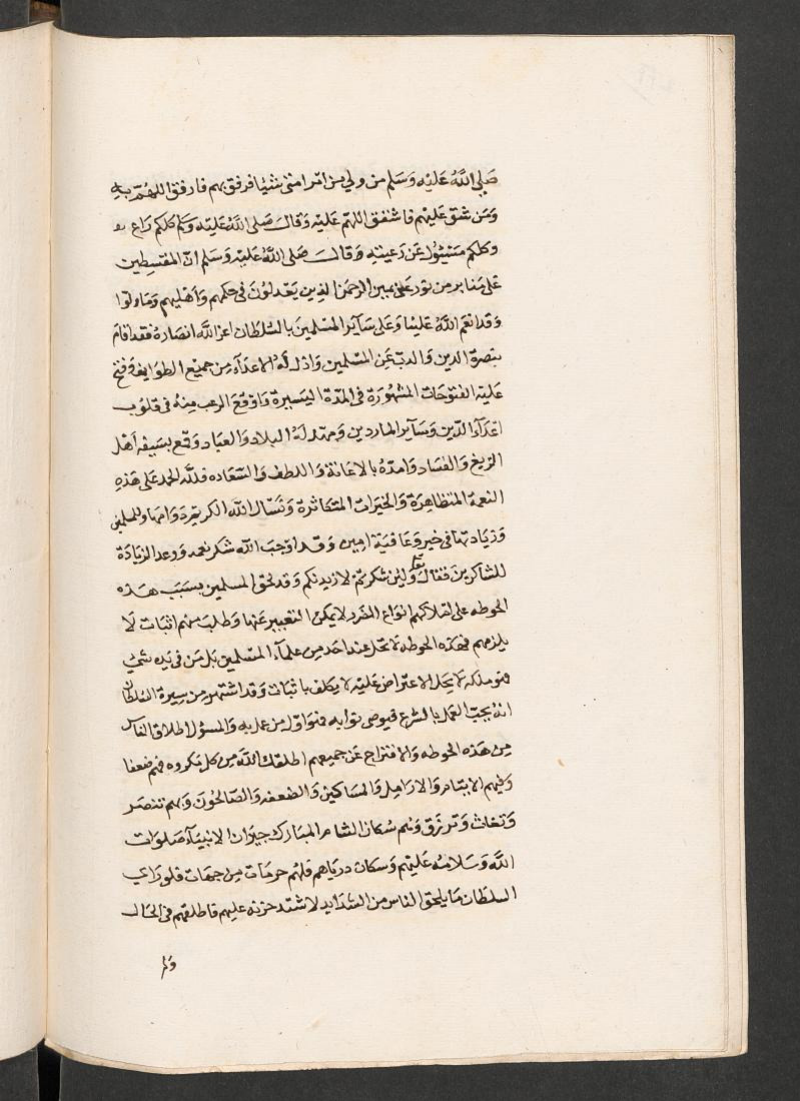 صَلي اللَّهُ عَليْه وَسَلم من ولي من امْر امتى شيئا فرفق بهم فارفق اللهُمّ به
وَمَن شق عَليْهم فاشفق اللهمّ عَليْه وَقالَ صَلى اللَّهُ عَليْه وَلم كلكم رَاع
وكلكم مَسْئُول عَن رَعيته وَقالَ صَلى اللَّهُ عَليْه وَسَلم انّ المقسِطين
عَلى مَنابر من نور عَلى يمين الرحمَن الذين يَعْدلوُن فى حكمهم وَاهْليهم وَمَا ولوا
وَقد انعَم اللَّهُ عَلينا وَعَلى سَاير المسْلمينَ بالسُلطَان اعز اللَّه انصَارهُ فقد اقامَ
بنصرة الدين وَالذبّ عَن المسْلمين وَاذلّ لهُ الاعدَاء مِن جميع الطوايف وَفتح
عَليْه الفتوحَات المشهُورَة فى المدّة اليسَيرة وَاوْقعَ الرعب منهُ فى قلوُب
اعْدَاء الدّين وَسَاير الماردين وَمهّد لهُ البلاد وَالعبَاد وَقمع بسَيفه اهْل
الزيغ وَالفسَاد وَامدّهُ بالاعَانة وَاللطف وَالسّعَاده فللَّه الحمد عَلى هَذهِ
النعمة المتظاهِرَة وَالخيرَات المتكاثرة وَنَسْال اللَّه الكريم دَوَامهَا وللمسلمين
وَزيَادتها فى خير وَعَافيَة امين وَقد اوْجَبَ اللَّه شكر نعمه وَوعد الزيَادَة
للشاكرينَ فقالَ تعالى وَلين شكرتم لازيدنكم وَقد لحق المسلمين بسَبَب هَذه
الحوطه عَلى املاكهم انوَاع الضرر لا يمكن التعبير عَنها وَطلب منهم اثبَات لَا
يلزمهم فهَذه الحوطه لا تحل عند احَد من علمآء المسْلمين بَل مَن فى يَده شئ
فهو ملكه لا يحل الاعترَاض عَليْه لا يكلف باثبات وَقد اشتهر من سيرة السُلطان
انهُ يحبّ العَمل بالشرع فيوصى نوابه فهوَ اوّل من عمل به وَالمسؤل اطلاق الناس
مِن هَذه الحوطه وَالافراج عَن جميعهم اطلقك اللَّه من كل مَكروه فهم ضعفا
وَفيهم الايتام وَالارامِل وَالمسَاكين وَالضعفه وَالصّالحُونَ وَبهم تنصَر
وَتغاث وَترزق وَهُم سُكان الشام المبَارك جيرَان الانبيآء صَلوات
اللَّه وَسَلامهُ عَليْهم وَسكان ديَارهم فلهُم حرمَات مِن جهَات فلو رَاى
السلطَان مَا يلحق الناس من الشدَايد لاشتد حزنه عليهم فاطلقهم فى الحَال
وَلم